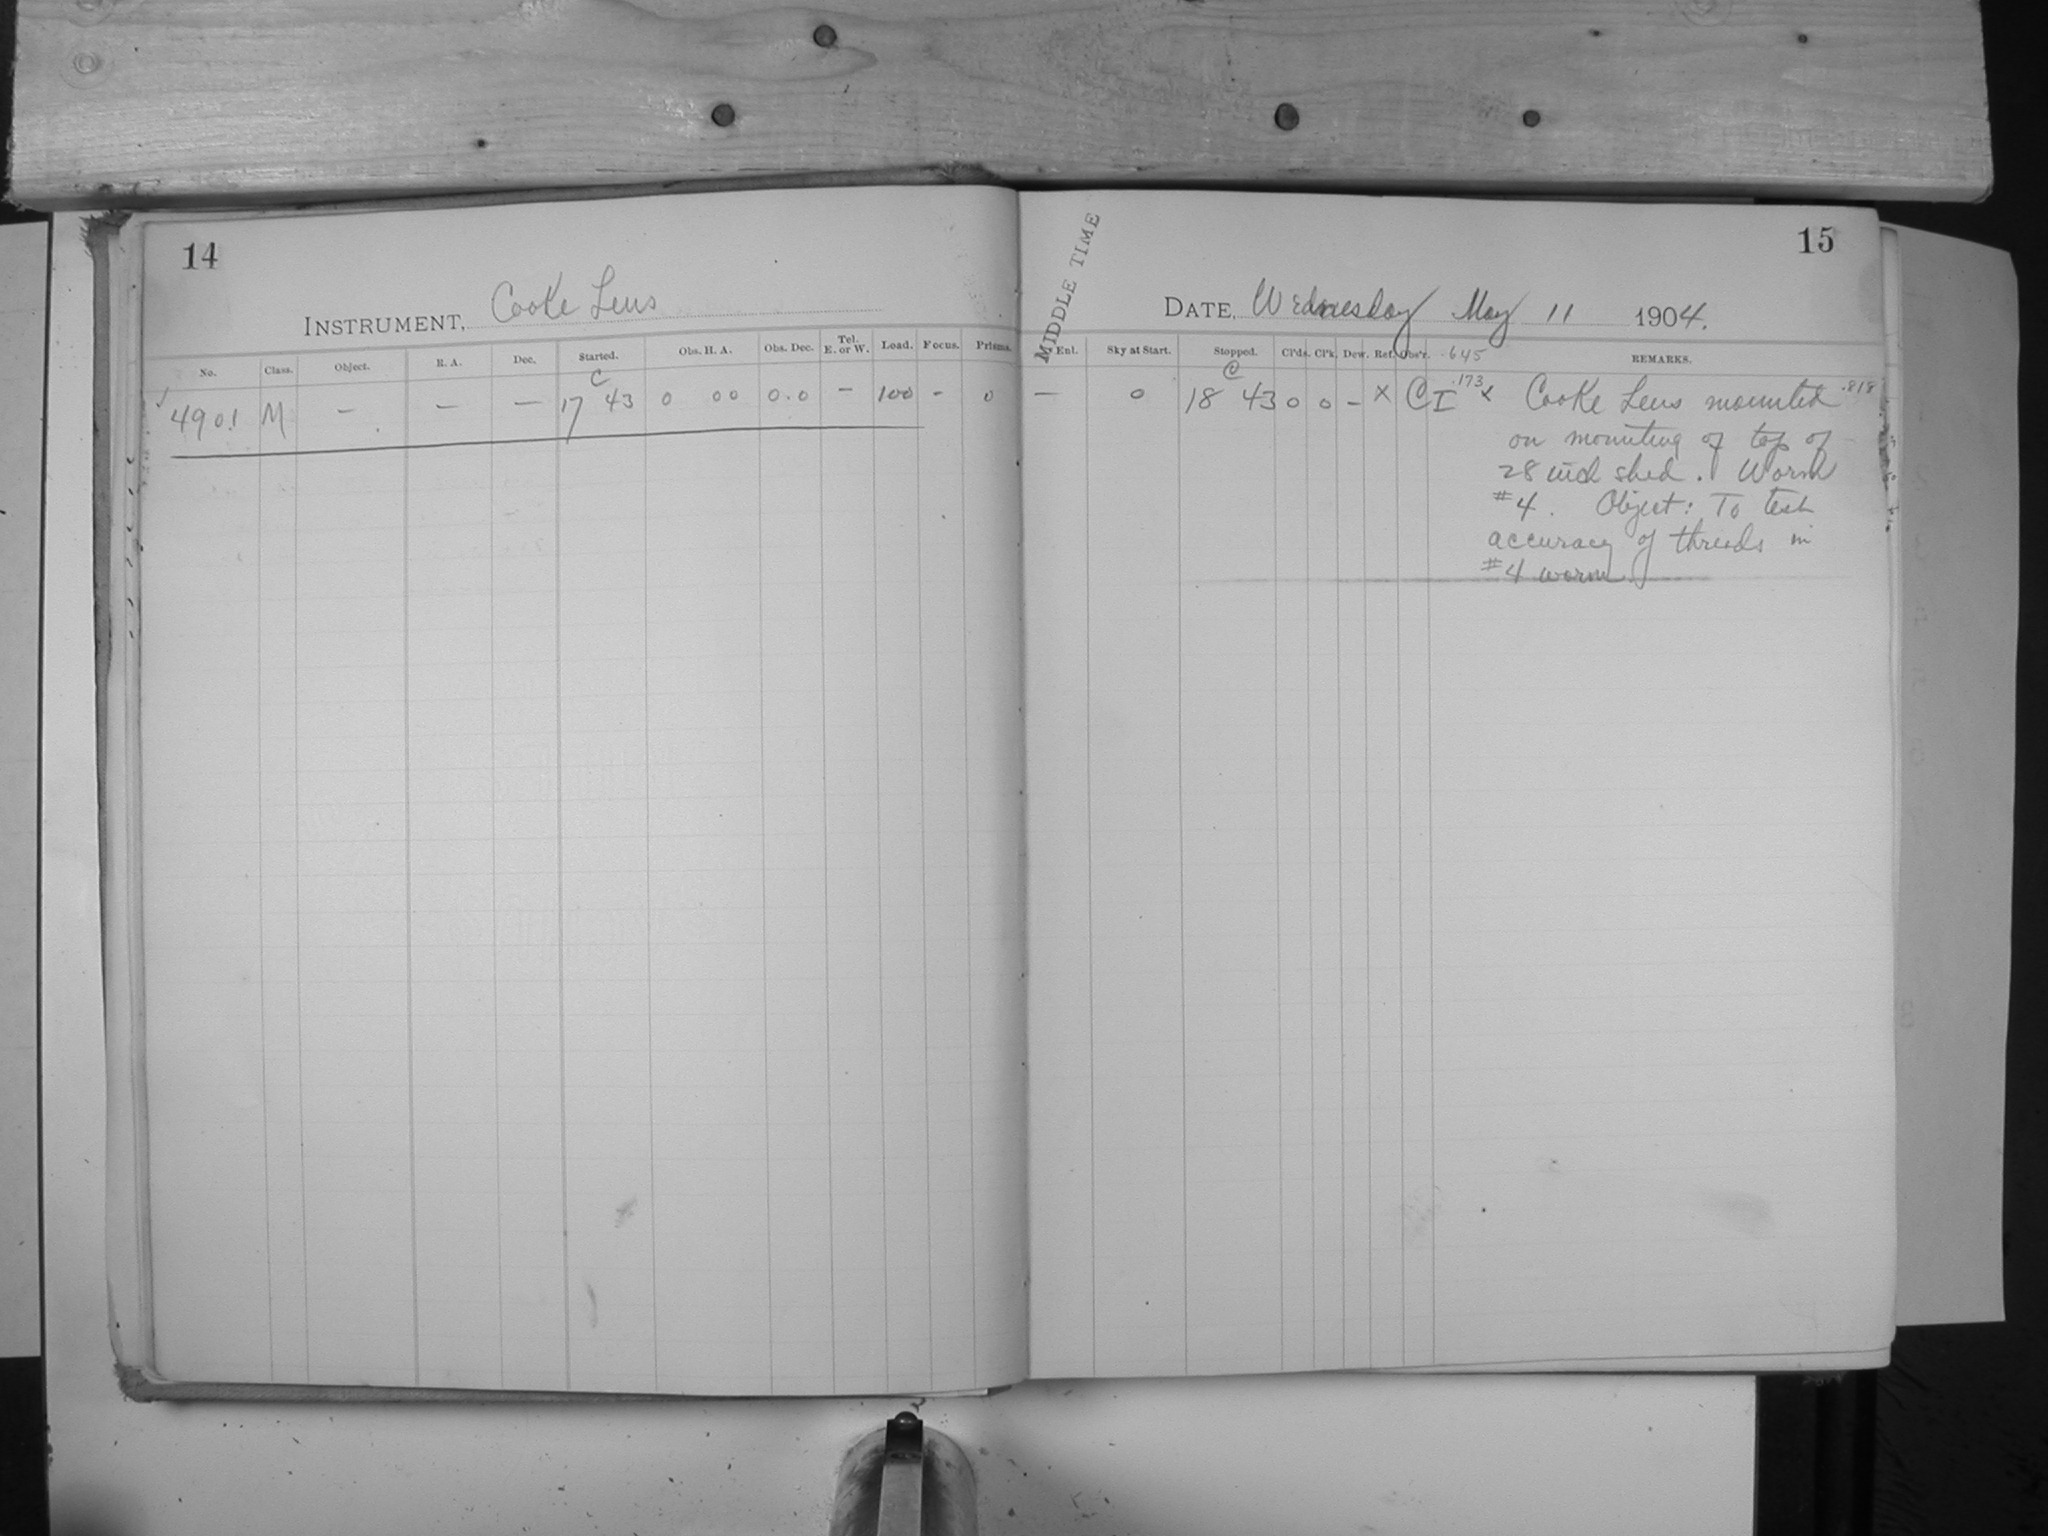 14
INSTRUMENT, Cooke Lens
No. Class. Object. R. A. Dec. Started. Obs. H. A. Obs. Dec. Tel. E. or W. Load. Focus. Prisms.
C
4901 M – – – 17 43 0 00 0.0 – 100 – 0
15
MIDDLE TIME
DATE, Wednesday May 11 1904.
Enl. Sky at Start. Stopped. Cl'ds. Cl'k. Dew. Ref. Obs'r. .645 REMARKS.
C
– 0 18 43 0 0 – x C I .173 x Cooke Lens mounted .818
on mounting of top of
28 inch shed. Worm
#4. Object: To test
accuracy of threads in
#4 worm